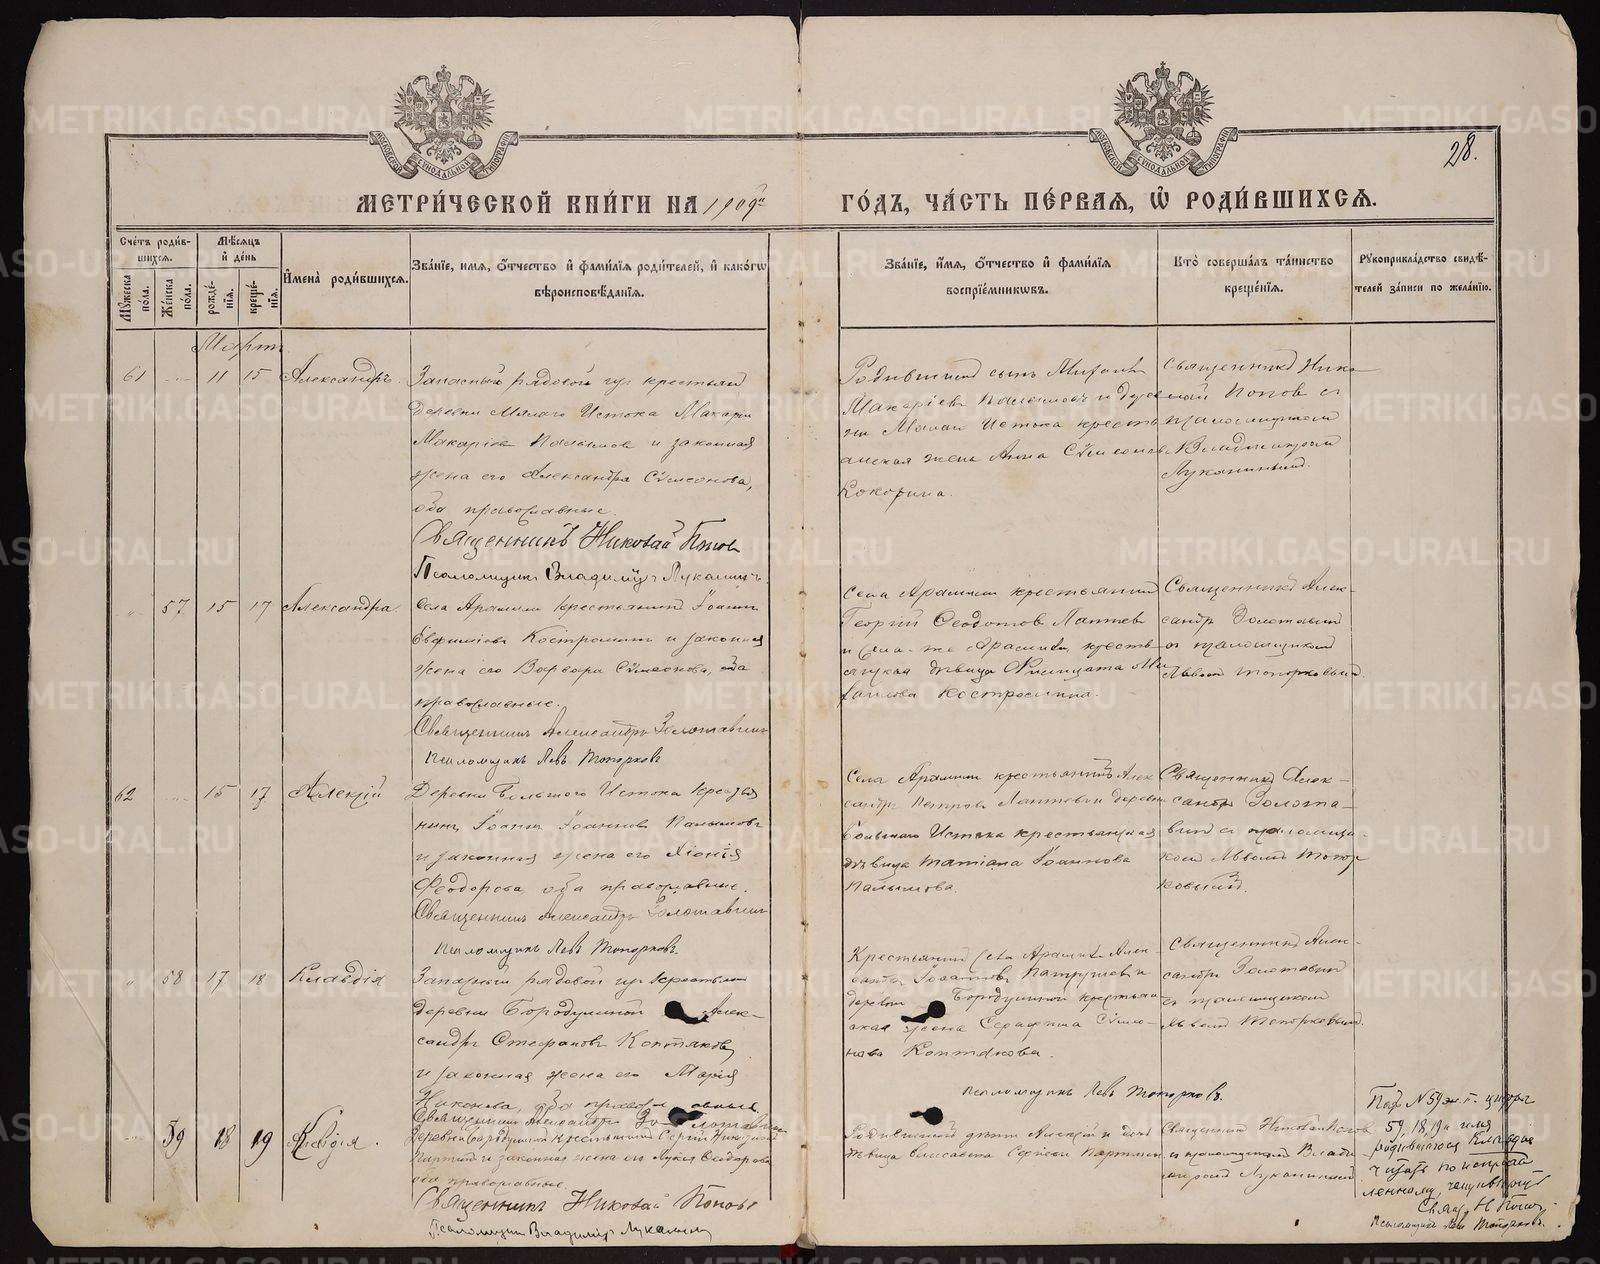 28.
МЕТРИ́ЧЕСКОЙ КНИ́ГИ НА 1909й
ГО́ДЪ, ЧА́СТЬ ПЕ́РВАЯ, Ѽ РОДИ́ВШИХСЯ.
Сче́тъ роди́в-
шихся.
Мѣ́сяцъ
и҆ де́нь
Мꙋ́жеска по́ла.
Же́нска по́ла.
рожде́-нїѧ.
креще́-нїѧ.
И҆мена̀ роди́вшихся.
Зва́нїе, и҆́мя, ѻ҆́тчество и҆ фами́лїя роди́телей, и҆ како́гѡ
вѣроисповѣ́данїя.
Зва́нїе, и҆́мя, ѻ҆́тчество и҆ фами́лїя
воспрїе́мникѡвъ.
Кто̀ соверша́лъ та́инство
креще́нїя.
Рꙋкоприкла́дство свидѣ́-
телей за́писи по жела́нїю.
Мартъ
61 11 15 Александръ.
Запасный рядовой изъ крестьянъ
деревни Малаго Истока Макарій
Макаріевъ Палымовъ и законная
жена его Александра Сѵмеонова,
оба православные.
Священникъ Николай Поповъ
Псаломщикъ Владиміръ Луканинъ.
Родившаго сынъ
Макаріевъ Палымовъ и дерев
ни Малаго Истока кресть
анская жена Анна Сѵмеонова
Кокорина.
Священникъ Нико-
лай Попов съ
псаломщикомъ
Владиміромъ
Луканинымъ.
57 15 17 Александра.
Села Арамили крестьянинъ Іоаннъ
Евфиміевъ Костроминъ и законная
жена его Варвара Сѵмеонова, оба
православные.
Священникъ Александръ Золотавинъ
Псаломщикъ Левъ Топорковъ
Села Арамили крестьянинъ
Георгій Ѳеодотовъ Лаптевъ
и села же Арамили кресть-
янская дѣвица
Костромина.
Священникъ Алек-
сандръ Золотавинъ
съ псаломщикомъ
Львомъ Топорковымъ.
62 15 17 Алексій
Деревни Большого Истока крестья
нинъ Іоаннъ Іоанновъ Палымовъ
и законная жена его Хіонія
Ѳеодорова, оба православные.
Священникъ Александръ Золотавинъ
Псаломщикъ Левъ Топорковъ.
Села Арамили крестьянинъ Алек
сандръ Петровъ Лаптевъ и деревни
Большого Истока крестьянская
дѣвица Татіана Іоаннова
Палымова.
Священникъ Алек-
сандръ Золота-
винъ съ псаломщи-
комъ Львомъ Топор
ковымъ.
58 17 18 Клавдія
Запасный рядовой изъ крестьянъ
деревни Бородулиной Алек-
сандръ Стефановъ Коптяковъ
и законная жена его Марія
Никонова, оба православные.
Священникъ Александръ Золотавинъ
Крестьянинъ села Арамили Алек
сандръ Іоанновъ Патрушевъ и
деревни Бородулиной крестьян
ская жена Серафима Сѵмео-
нова Коптякова.
Псаломщикъ Левъ Топорковъ.
Священникъ Алек-
сандръ Золотавинъ
съ псаломщикомъ
Львомъ Топорковымъ.
59 18 19
Деревни Бородулиной крестьянинъ Сергій
Партинъ и законная жена его Ѳеодорова
оба православные.
Священникъ Николай Поповъ
Псаломщикъ Владиміръ Луканинъ
Родившаго дѣти Алексій и дочь
дѣвица Елисавета Сергіевы Партины.
Священникъ Николай Поповъ
съ псаломщикомъ Влади
міромъ Луканинымъ
Подъ № 59 ж. п. цифры
59, 18, 19 и имя
родившагося Клавдія
читать по исправ
ленному,
Свящ. Н Поповъ.
Псаломщикъ Левъ Топорковъ.